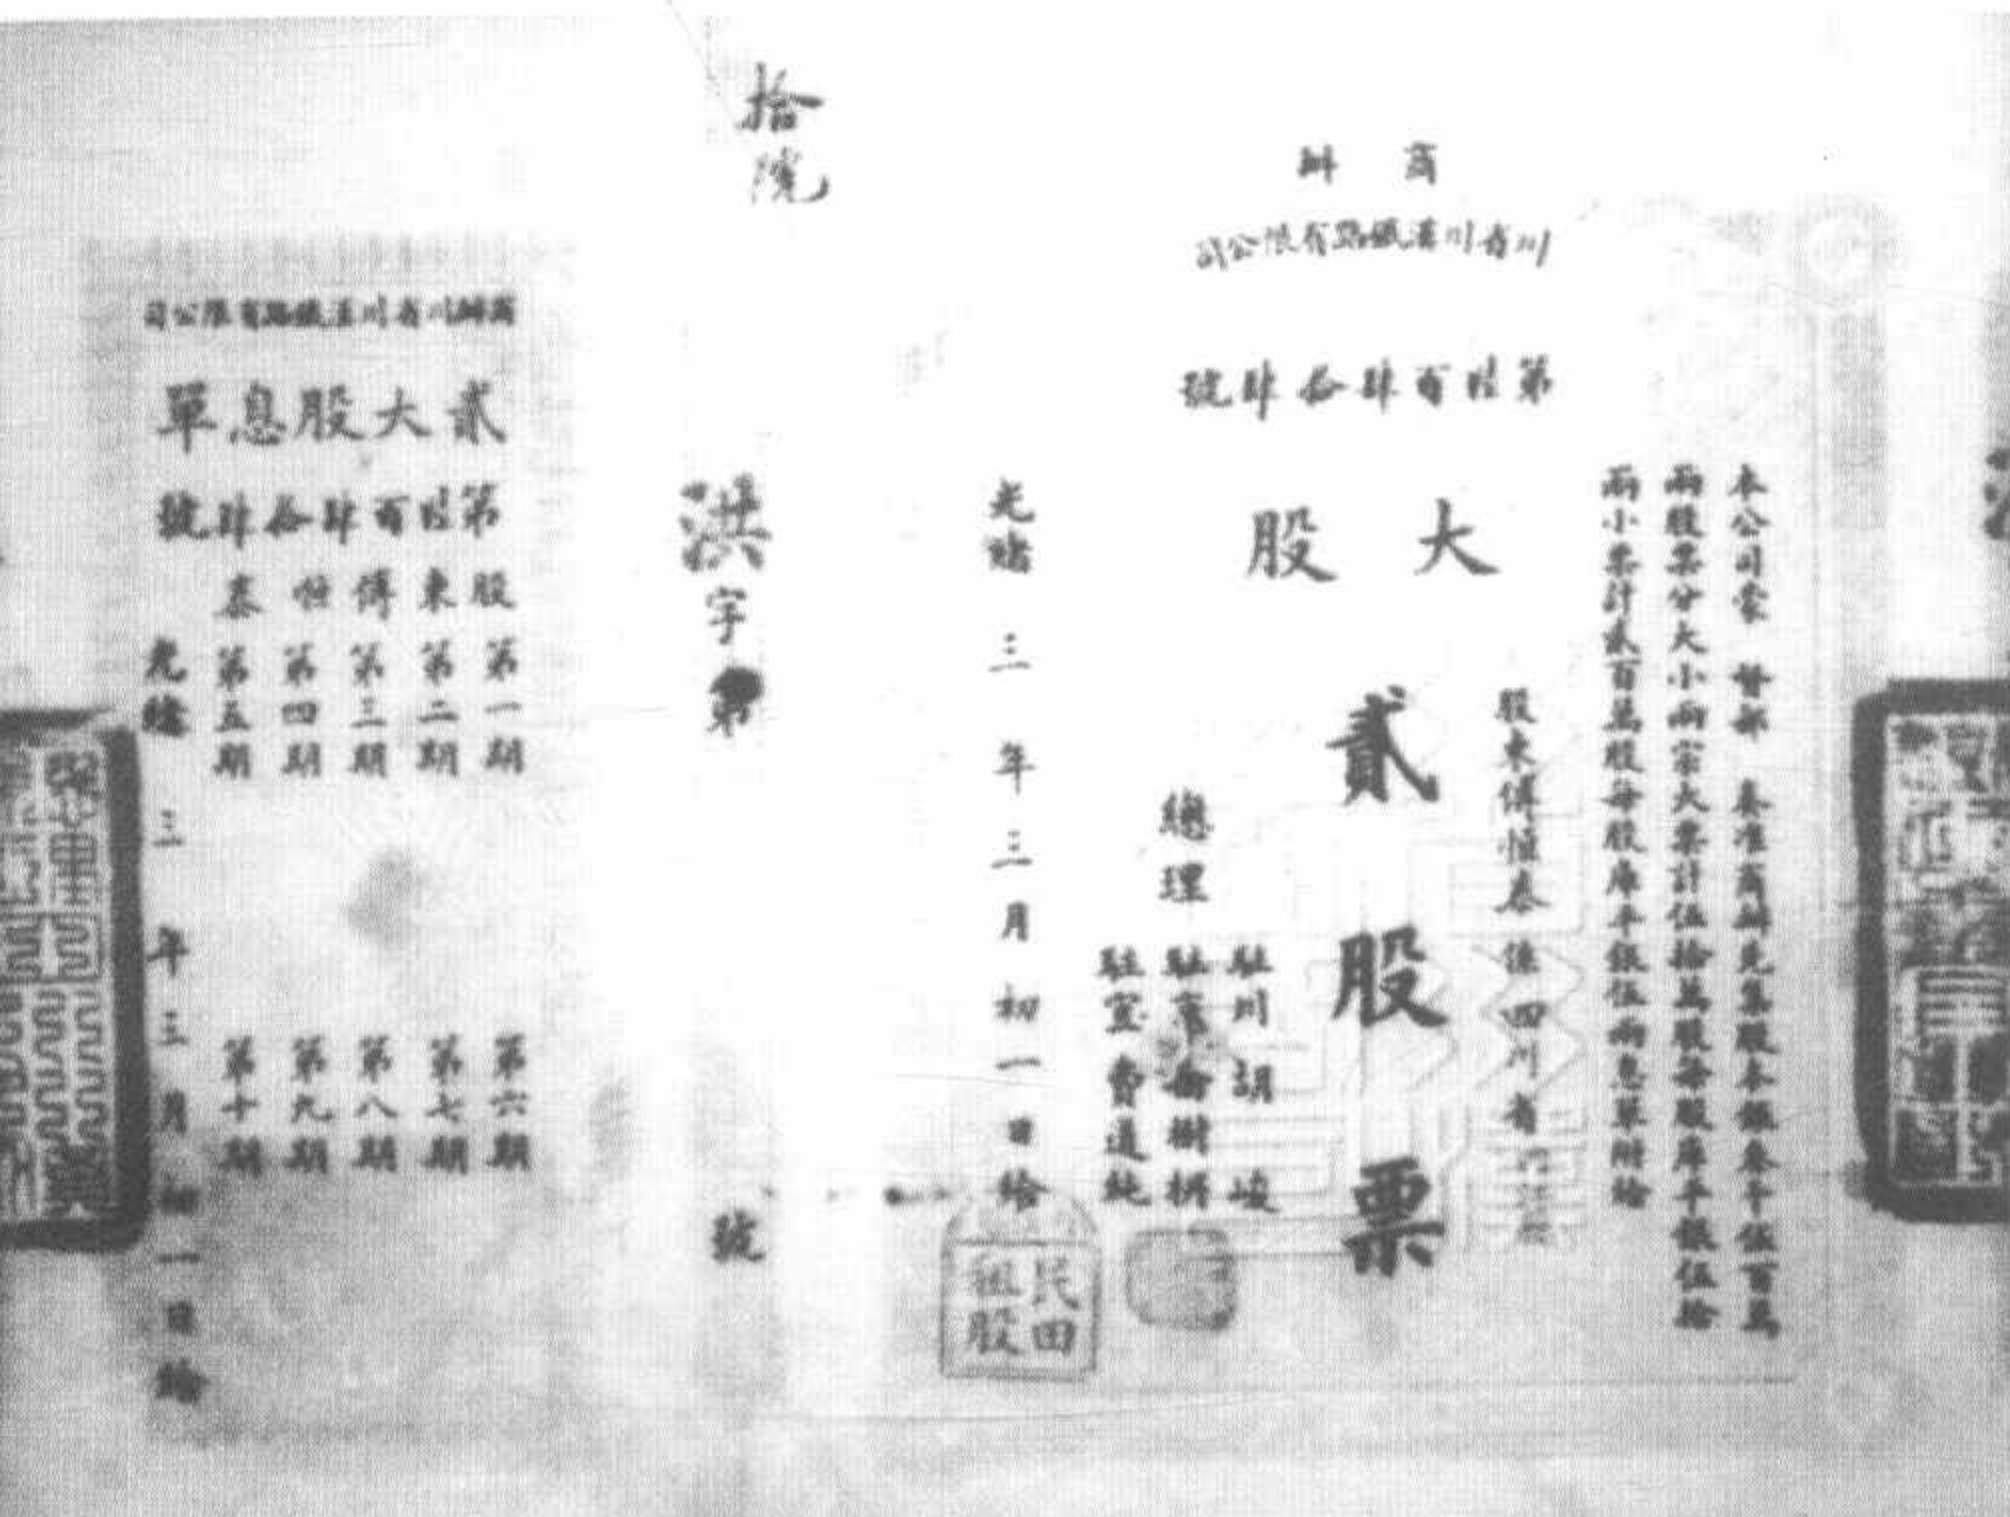 商辦
川省川漢鐵路有限公司
第陸百肆拾肆號
大股
本公司蒙 督部 奏准商辦先集股本銀叁千伍百萬
兩股票分大小兩宗大票計伍拾萬股每股庫平銀伍拾
兩小票計貳百萬股每股庫平銀伍兩息單附給
股東傅恒泰係四川省
貳股票
總理
駐川胡峻
駐京喬樹枬
駐宜費道純
光緒三年三月初一日給
民田
租股
拾號
洪字第 號
商辦川省川漢鐵路有限公司
貳大股息單
第陸百肆拾肆號
股東傅恒泰
第一期 第六期
第二期 第七期
第三期 第八期
第四期 第九期
第五期 第十期
光緒三年三月初一日給